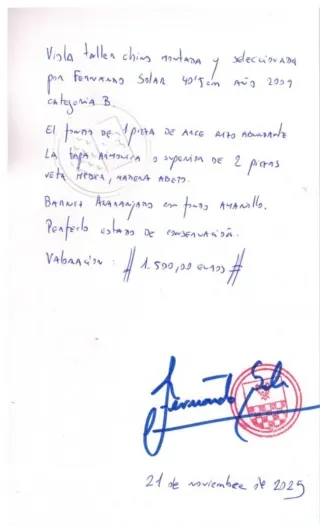 Viola taller chino montada y seleccionada
por FERNANDO SOLAR 40'5cm AÑO 2009
categoria B.
El fondo DE 1 pieza DE ARCE rizo abundante
LA tapa ARMONICA o superior DE 2 piezas
veta MEDIA, MADERA ABETO.
BARNIZ ANARANJADO con fondo AMARILLO.
Perfecto estado DE CONSERVACIÓN.
VALORACIÓN : # 1.500,00 euros #
Fernando Sola
21 de noviembre de 2025